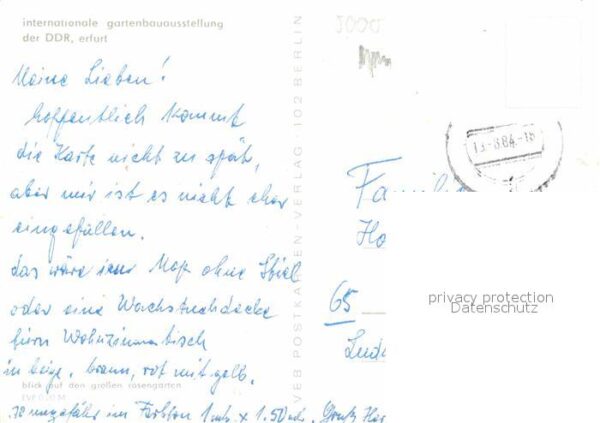 internationale gartenbauausstellung
der DDR, erfurt
Meine Lieben!
hoffentlich kommt
die Karte nicht zu spät,
aber mir ist es nicht eher
eingefallen.
das wäre Mop ohne Stiel
oder eine Wachstuchdecke
fürn Wohnzimmertisch
in beige, braun, rot mit gelb.
blick auf den großen rosengarten
EVP 0,20 M
ungefähr im Farbton 1 mtr. x 1.50 mtr. Gruß
VEB POSTKARTEN-VERLAG · 102 BERLIN
13-8.84.-18
Fam
Ho
65
Lud
privacy protection
Datenschutz